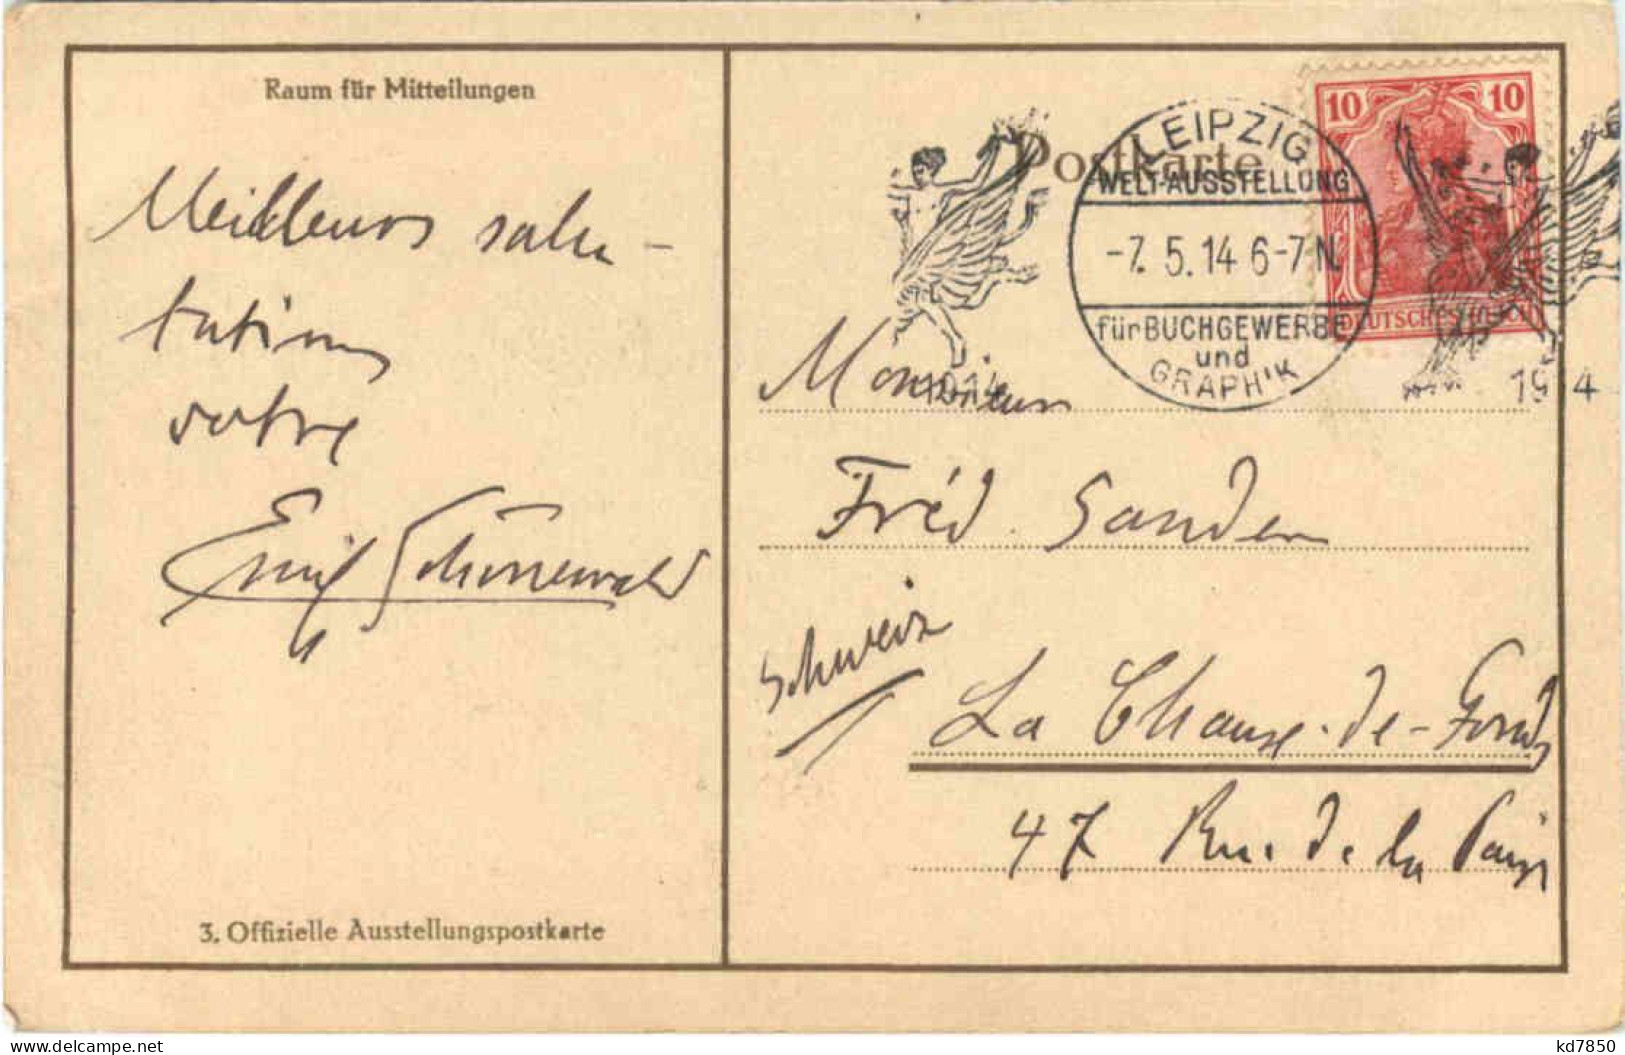 Raum für Mitteilungen
Meilleures salu-
tations
votre
Emil Schönewald
3. Offizielle Ausstellungspostkarte
Postkarte
LEIPZIG
WELT-AUSSTELLUNG
-7.5.14 6-7 N.
für BUCHGEWERBE
und
GRAPHIK
1914
10 10
DEUTSCHES REICH
1914
Monsieur
Fréd. Sander
Schweiz
La Chaux-de-Fonds
47 Rue de la Paix
www.delcampe.net
kd7850